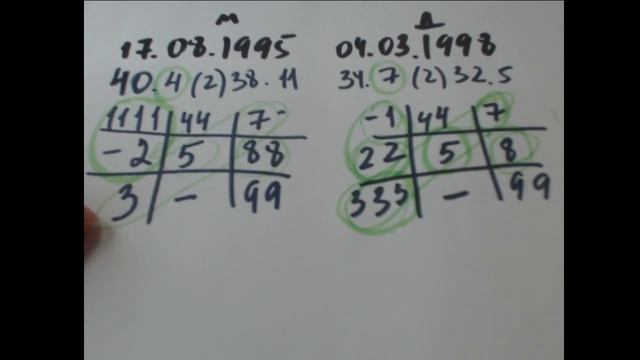 м
17.08.1995
40.4(2)38.11
1111 44 7-
-2 5 88
3 - 99
д
04.03.1998
34.7(2)32.5
-1 44 7
22 5 8
333 - 99